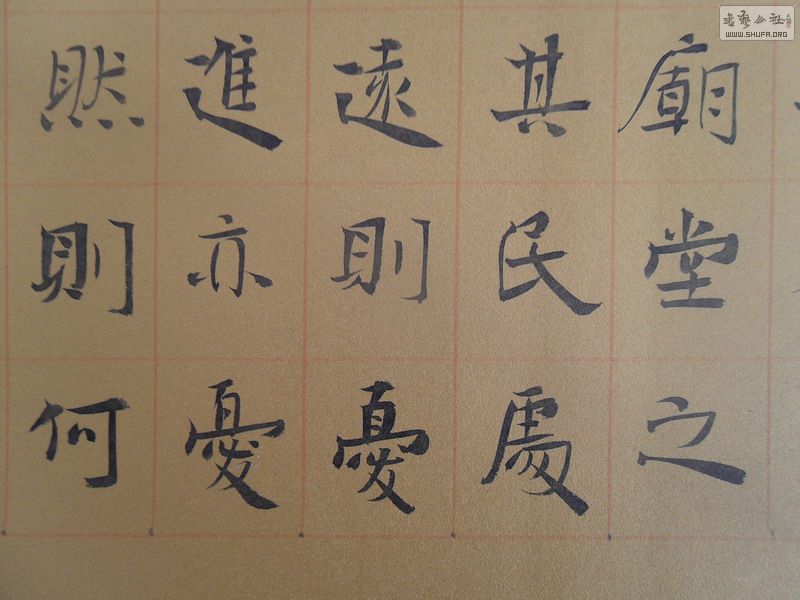 廟堂之
其民處
遠則憂
進亦憂
然則何
書藝公社
WWW.SHUFA.ORG